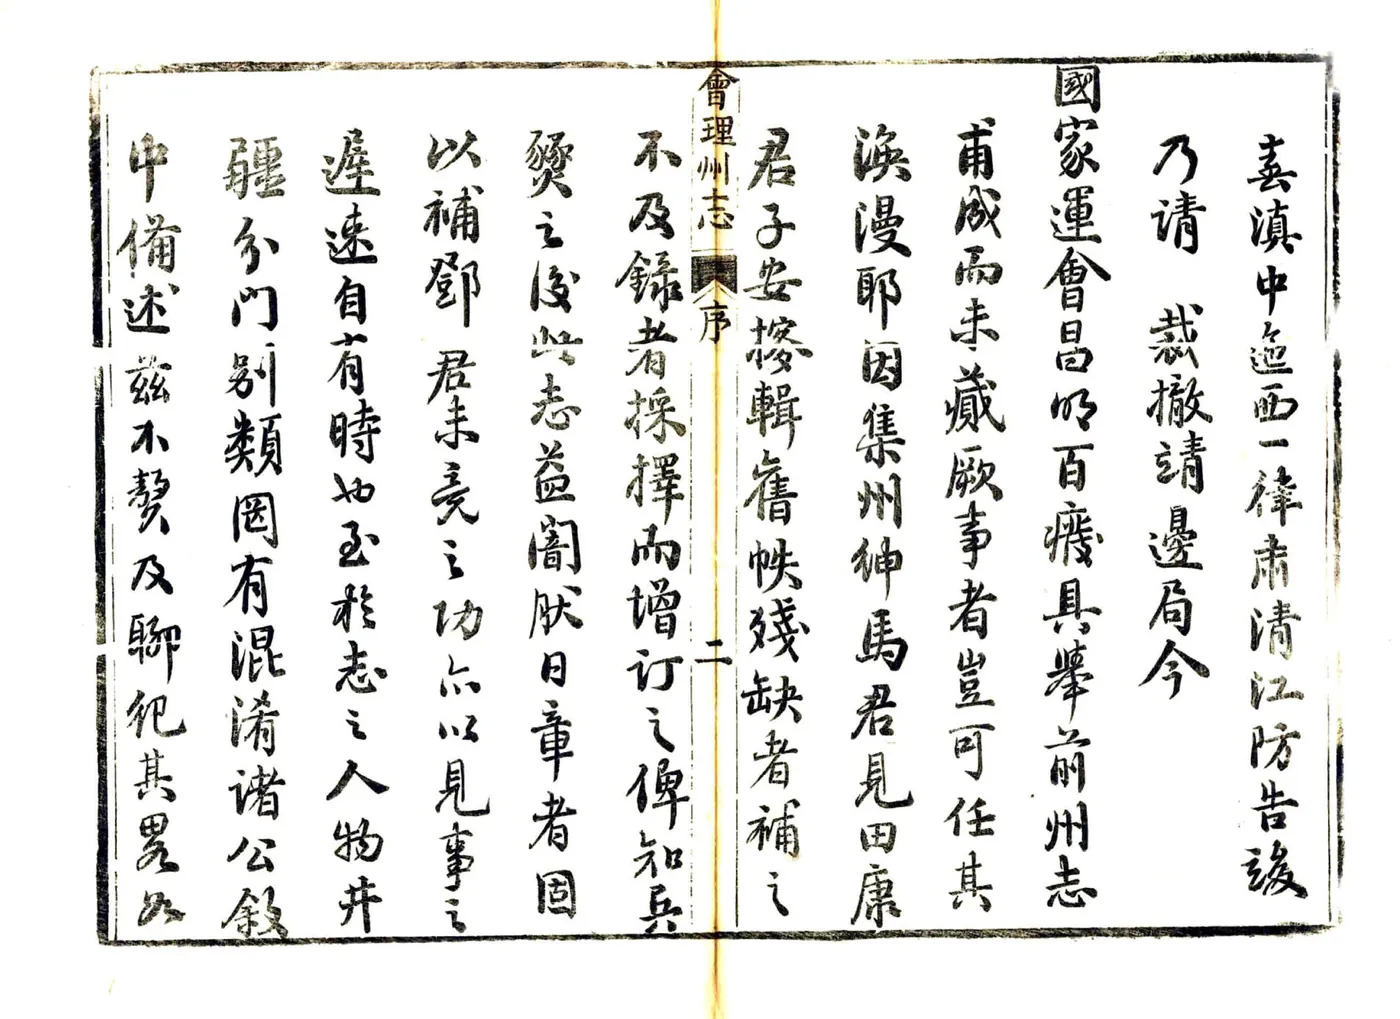 春滇中迤西一律肅清江防告竣
乃請 裁撤靖邊局今
國家運會昌明百癈具舉前州志
甫成而未藏厥事者豈可任其
渙漫耶因集州紳馬君見田康
君子安搽輯舊帙殘缺者補之
會理州志 序 二
不及録者採擇而增訂之俾知兵
燹之後此志益闇然日章者固
以補鄧君未竟之功亦以見事之
遲速自有時也至於志之人物井
疆分門别類罔有混淆諸公敘
中備述兹不贅及聊紀其畧如